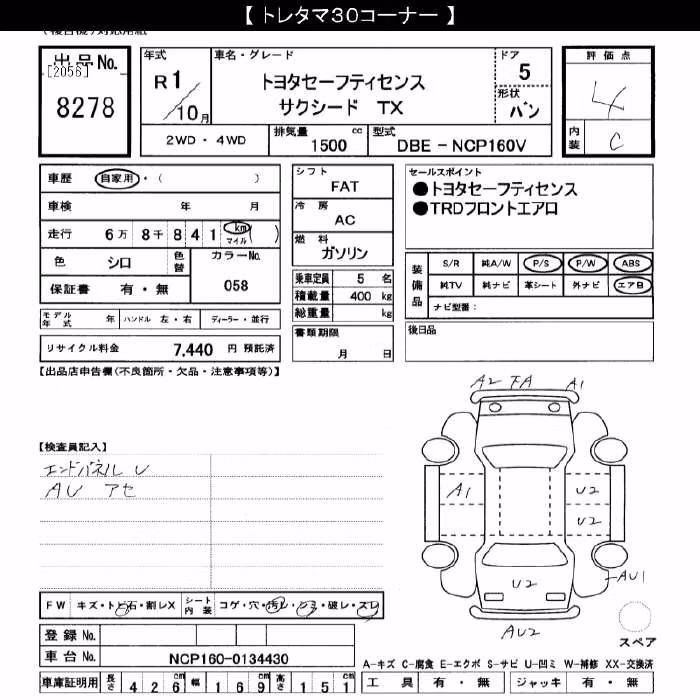 【 トレタマ30コーナー 】
出品No.
[2056]
8278
年式
R1
10月
車名・グレード
トヨタセーフティセンス
サクシード TX
ドア
5
形状
バン
2WD・4WD
排気量 1500 cc
型式 DBE-NCP160V
評価点
4
内装
C
車歴 自家用・( )
車検 年 月
走行 6万 8千 8 4 1 (km マイル)
色 シロ 色替 カラーNo. 058
保証書 有・無
モデル年式 年 ハンドル 左・右 ディーラー・並行
リサイクル料金 7,440 円 預託済
シフト
FAT
冷房
AC
燃料
ガソリン
乗車定員 5 名
積載量 400 kg
総重量 kg
書類期限
月 日
セールスポイント
●トヨタセーフティセンス
●TRDフロントエアロ
装備品
S/R 純A/W P/S P/W ABS
純TV 純ナビ 革シート 外ナビ エアB
ナビ型番:
後日品
【出品店申告欄(不良箇所・欠品・注意事項等)】
【検査員記入】
エンドパネル U
AU アセ
A2 FA A1
A1 U2
U2
AU1
U2
AU2
スペア
FW キズ・トビ石・割レX シート内装 コゲ・穴・汚レ・シミ・破レ・スレ
登録No.
車台No. NCP160-0134430
車庫証明用 長さ 426cm 幅 169cm 高さ 151cm
A-キズ C-腐食 E-エクボ S-サビ U-凹ミ W-補修 XX-交換済
工具 有・無 ジャッキ 有・無